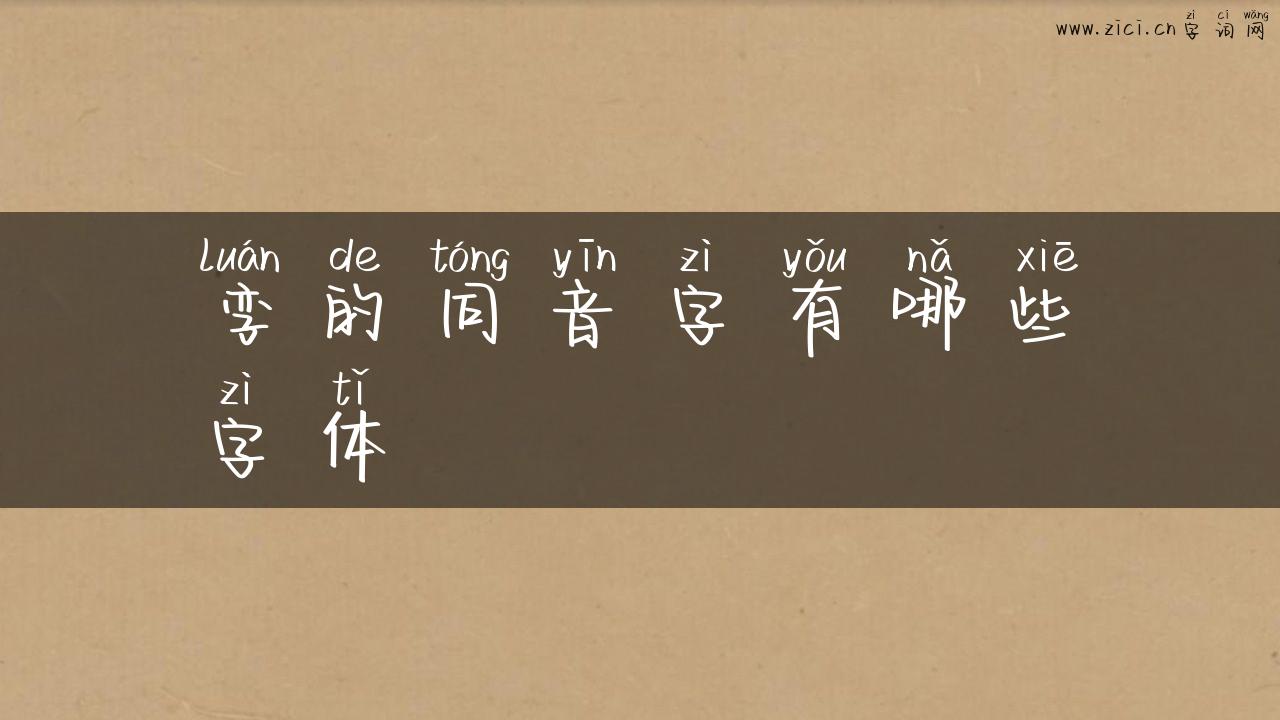 zì cí wǎng
www.zici.cn 字词网
luán de tóng yīn zì yǒu nǎ xiē
孪的同音字有哪些
zì tǐ
字体